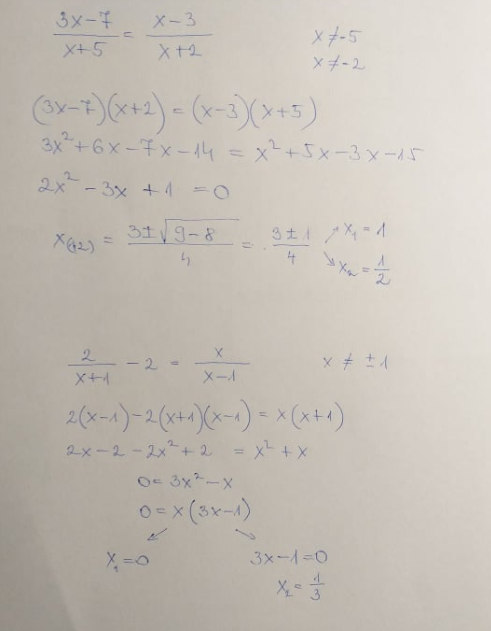 (3x-7)/(x+5) = (x-3)/(x+2)    x ≠ -5
x ≠ -2
(3x-7)(x+2) = (x-3)(x+5)
3x² + 6x - 7x - 14 = x² + 5x - 3x - 15
2x² - 3x + 1 = 0
x(1,2) = (3 ± √(9-8))/4 = (3 ± 1)/4 ↗ x₁ = 1
↘ x₂ = 1/2
2/(x+1) - 2 = x/(x-1)    x ≠ ±1
2(x-1) - 2(x+1)(x-1) = x(x+1)
2x - 2 - 2x² + 2 = x² + x
0 = 3x² - x
0 = x(3x-1)
↙ ↘
x₁ = 0    3x - 1 = 0
x₂ = 1/3